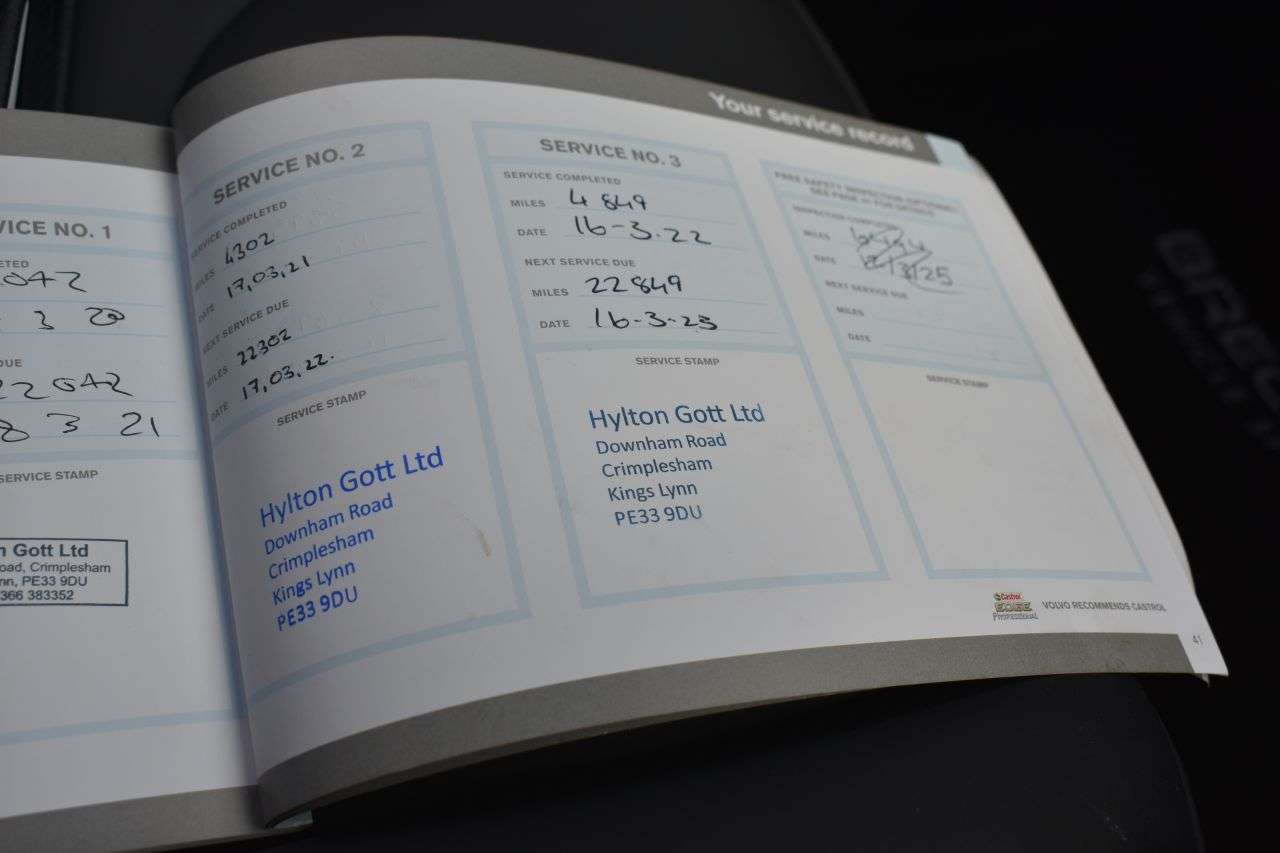 VICE NO. 1
ETED
042
3 20
DUE
22042
8 3 21
SERVICE STAMP
n Gott Ltd
oad, Crimplesham
nn, PE33 9DU
366 383352
Your service record
SERVICE NO. 2
SERVICE COMPLETED
MILES 4302
DATE 17,03,21
NEXT SERVICE DUE
MILES 22302
DATE 17,03,22.
SERVICE STAMP
Hylton Gott Ltd
Downham Road
Crimplesham
Kings Lynn
PE33 9DU
SERVICE NO. 3
SERVICE COMPLETED
MILES 4849
DATE 16-3.22
NEXT SERVICE DUE
MILES 22849
DATE 16-3-23
SERVICE STAMP
Hylton Gott Ltd
Downham Road
Crimplesham
Kings Lynn
PE33 9DU
FREE SAFETY INSPECTION (OPTIONAL)
SEE PAGE FOR DETAILS
INSPECTION COMPLETED
MILES
DATE 12/3/25
NEXT SERVICE DUE
MILES
DATE
SERVICE STAMP
Castrol
EDGE
PROFESSIONAL
VOLVO RECOMMENDS CASTROL
41